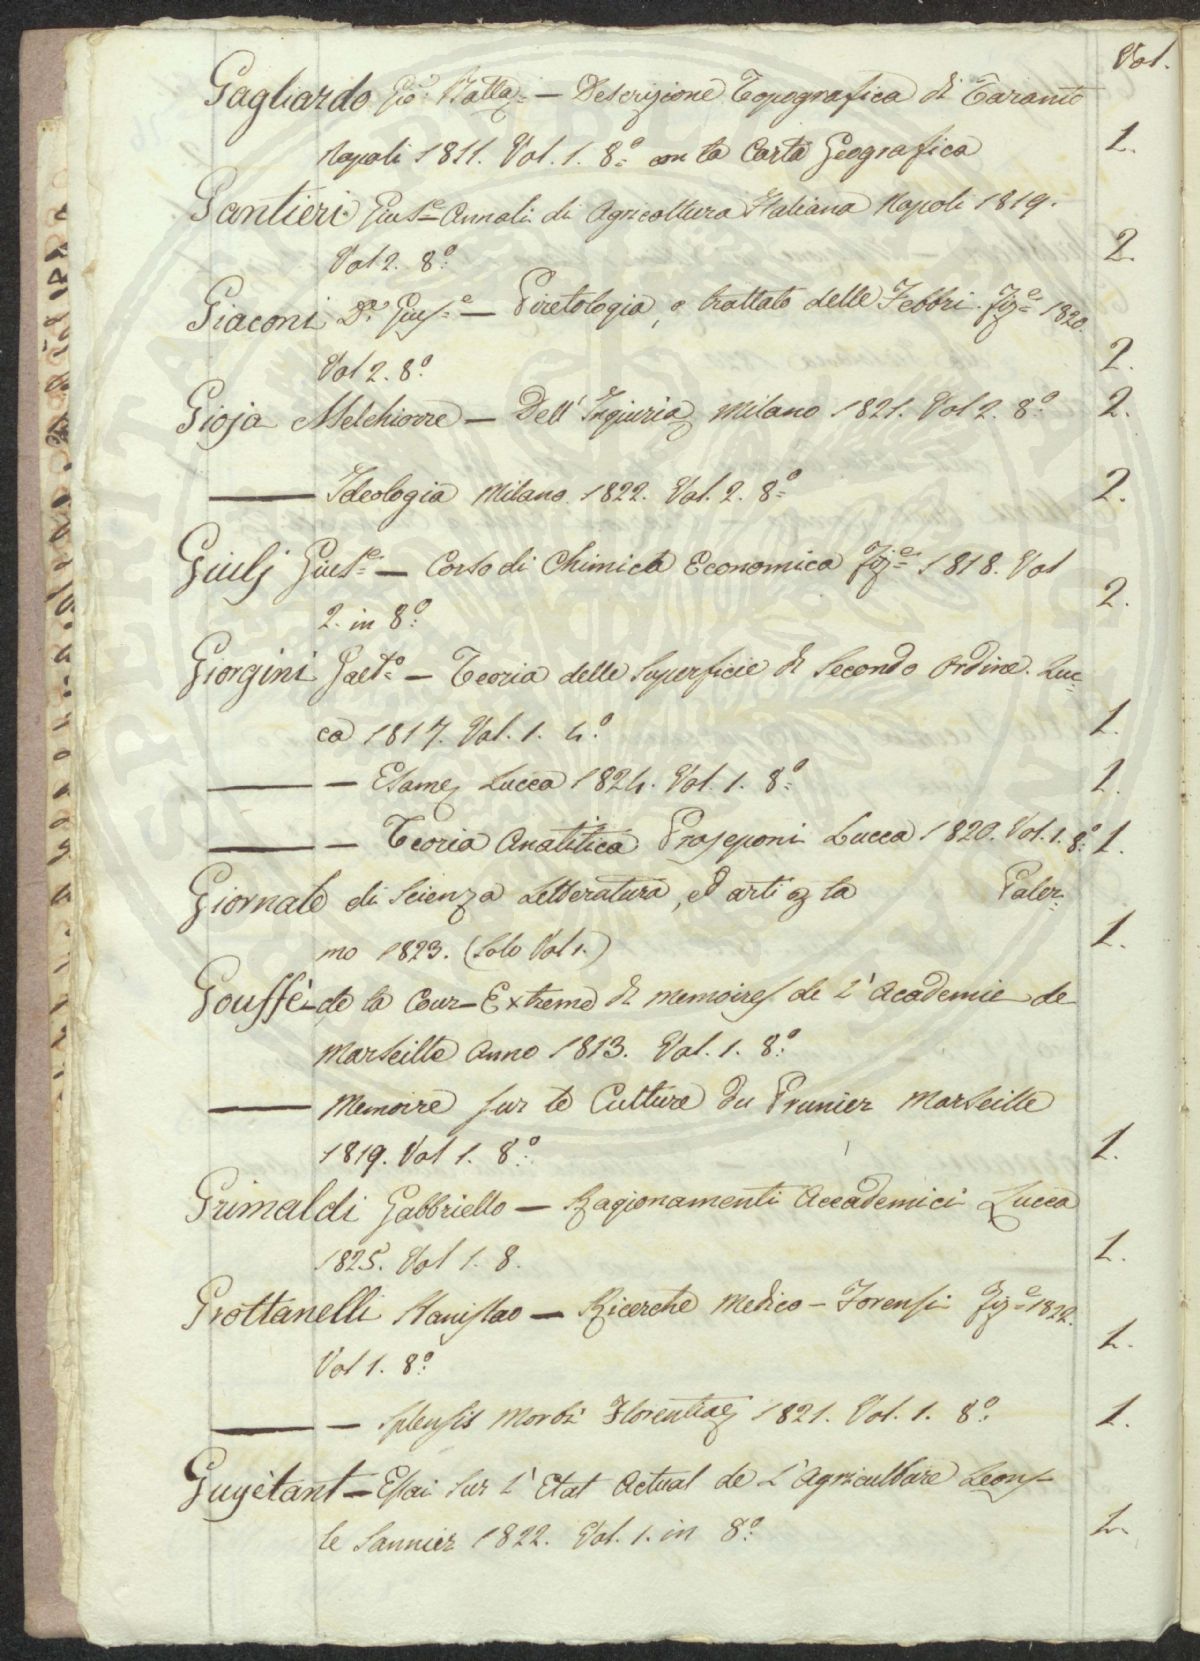 Vol.
Gagliardo Gio: Batta: — Descrizione Topografica di Taranto
Napoli 1811. Vol. 1. 8.º con la Carta Geografica 1.
Gantieri Gius.e Annali di Agricoltura Italiana Napoli 1819.
Vol 2. 8.º 2.
Giaconi D.r Gius.e — Piretologia, o trattato delle Febbri. Fiz.e 1820.
Vol 2. 8.º 2.
Gioja Melchiorre — Dell' Ingiuria, Milano 1821. Vol 2. 8.º 2.
—— Ideologia Milano 1822. Vol. 2. 8.º 2.
Giulj Gius.e — Corso di Chimica Economica Fiz.e 1818. Vol
2. in 8.º 2.
Giorgini Gaet.º — Teoria delle Superficie di Secondo Ordine. Luc-
ca 1817. Vol. 1. 4.º 1.
—— — Esame, Lucca 1824. Vol. 1. 8.º 1.
—— — Teoria Analitica Lucca 1820. Vol. 1. 8.º 1.
Giornale di Scienza Letteratura, ed arti la Paler-
mo 1823. (Solo Vol 1.) 1.
Gouffè de la Cour — Extreme di memoires de L' Academie de
Marseille Anno 1813. Vol. 1. 8.º
—— Memoire sur le Culture du Prunier Marseille
1819. Vol 1. 8.º 1.
Grimaldi Gabbriello — Ragionamenti Accademici Lucca
1825. Vol 1. 8. 1.
Grottanelli Stanislao — Ricerche Medico — Forensi Fiz.e 1822.
Vol 1. 8.º 1.
—— — Morbi Florentiae, 1821. Vol. 1. 8.º 1.
Guyètant — Essai Sur L' Etat Actual de L' Agriculture Leons-
le Saunier 1822. Vol. 1. in 8.º 1.